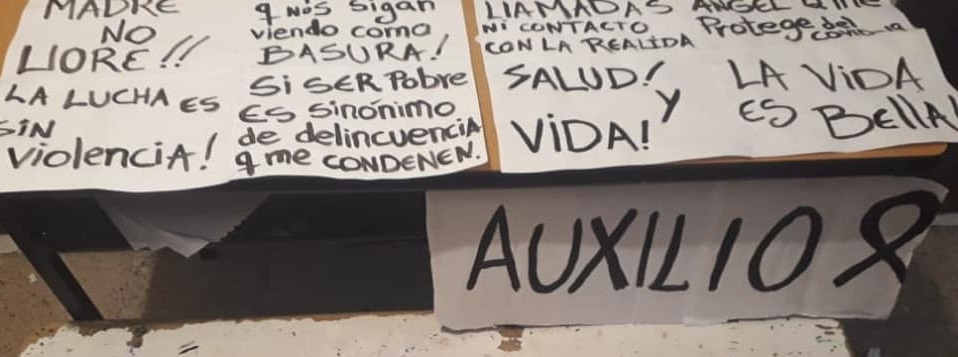 MADRE
NO
LLORE!!
LA LUCHA ES
SIN
violenciA!
q NOS sigan
viendo como
BASURA!
Si SER Pobre
ES Sinónimo
de delincuenciA
q me CONDENEN.
LLAMADAS
Ni CONTACTO
CON LA REALIDA
SALUD!
Y
ViDA!
ANGEL
Protege del
covid-19
LA ViDA
ES BELLA!
AUXILIO